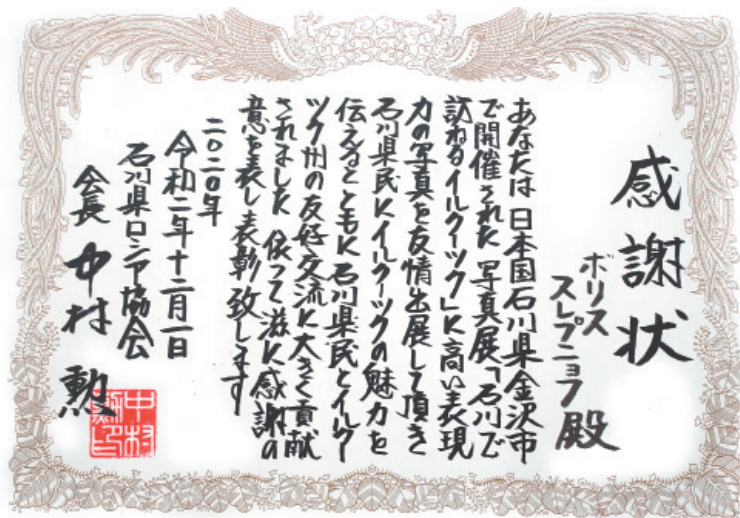 感謝状
ボリス
スレプニョフ殿
あなたは日本国石川県金沢市
で開催された写真展「石川で
訪ねるイルクーツク」に高い表現
力の写真を友情出展して頂き
石川県民にイルクーツクの魅力を
伝えるとともに石川県民とイルクー
ツク州の友好交流に大きく貢献
されました 依って滋に感謝の
意を表し表彰致します
二〇二〇年
令和二年十二月一日
石川県ロシア協会
会長 中村 勲
中村
勲印